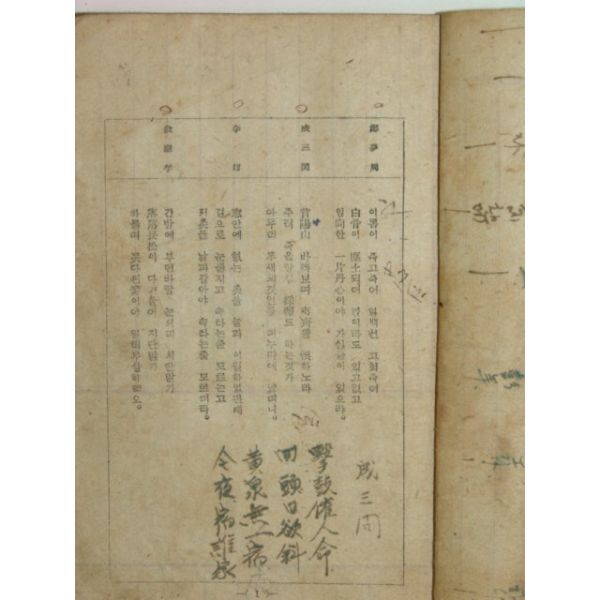 鄭夢周
이몸이 죽고죽어 일백번 고쳐죽어
白骨이 塵土되어 넋이라도 있고없고
님向한 一片丹心이야 가실줄이 있으랴。
成三問
首陽山 바라보며 夷齊를 恨하노라
주려 죽을진들 採薇도 하는것가
아무리 푸새엣것인들
李塏
窓안에 혓는 燭불 눌과 이별하였관데
겉으로 눈물지고 속타는줄 모르는고
저燭불 날과같아야 속타는줄 모르더라。
兪應孚
간밤에 부던바람 눈서리 치단말가
落落長松이 다기울어 지단말가
하물며 못다핀꽃이야 일러무삼하리오。
成三問
擊鼓催人命
回頭日欲斜
黃泉無一病
今夜病誰家